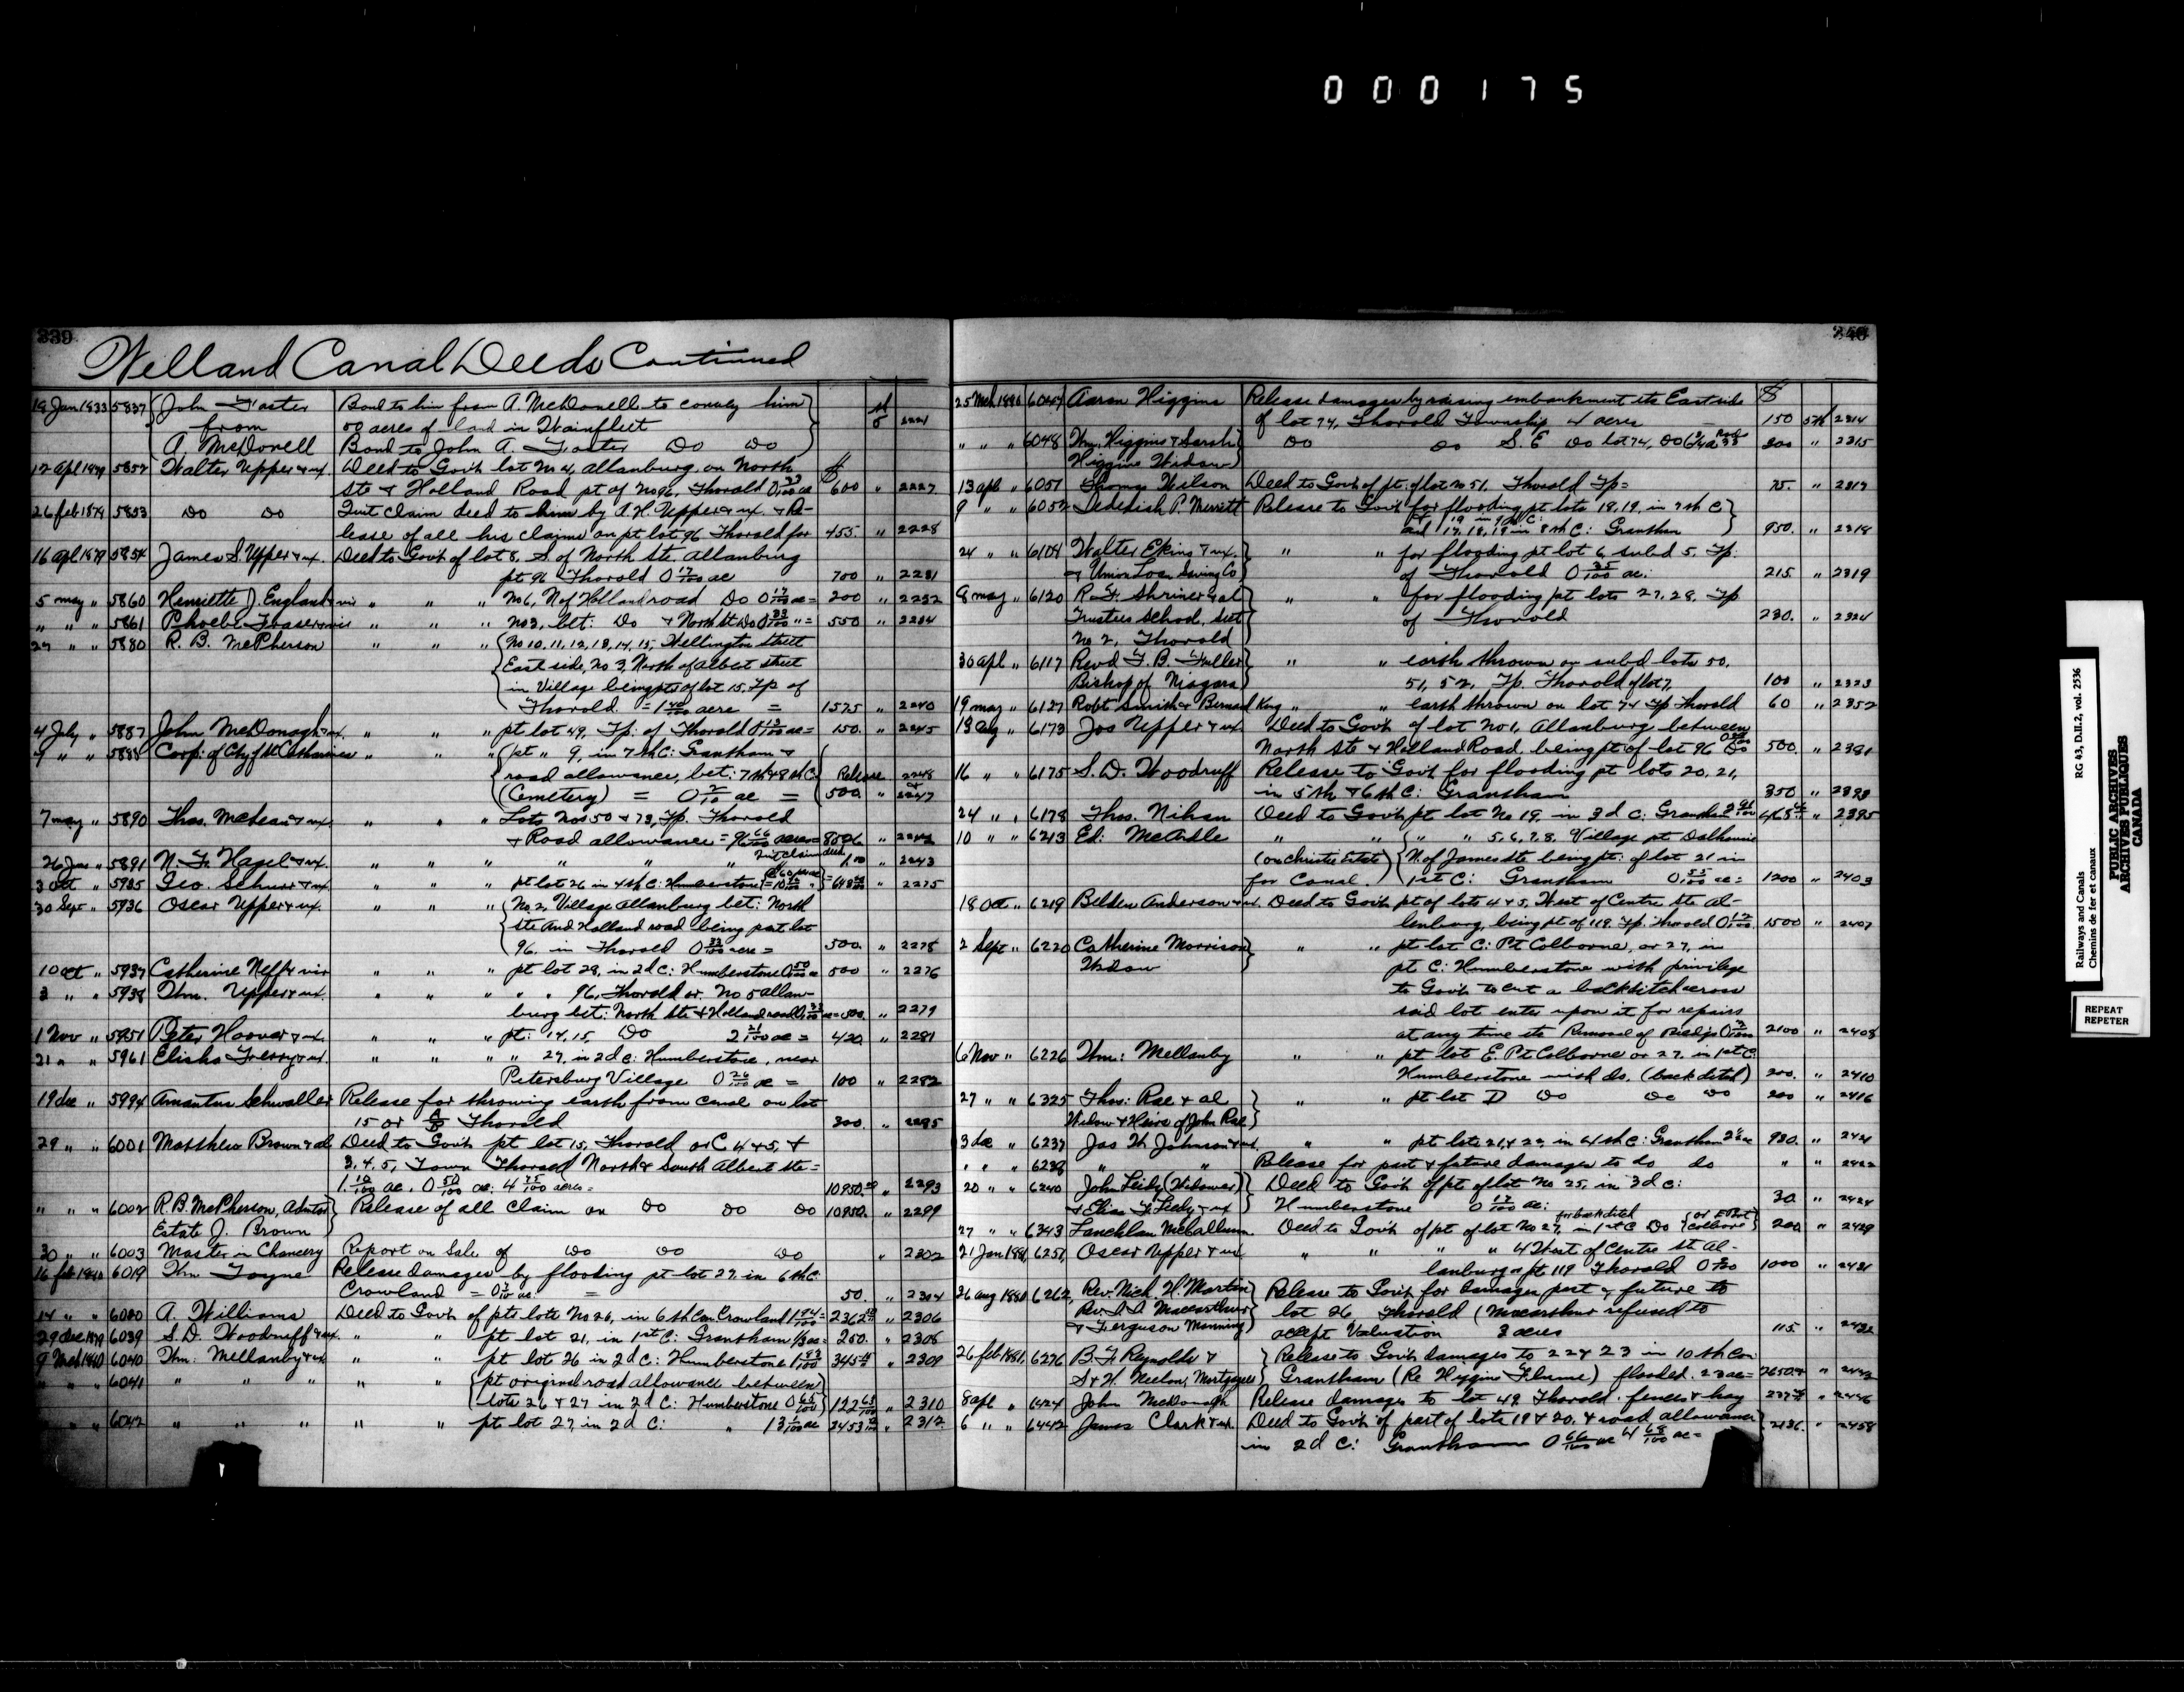 000175
339
Welland Canal Deeds Continued
19 Jan 1833 5837 John Foster Bond to him from A. McDonell to convey him
from 50 acres of land in Wainfleet 2221
A. McDonell Bond to John A. Foster Do Do
12 apl 1879 5852 Walter Upper & ux. Deed to Govt lot No 4, Allanburg, on North $
Ste & Holland Road pt of No 96, Thorold 0 33/100 ac 600 " 2227
26 feb 1879 5853 Do Do Quit Claim deed to him by A. H. Upper & ux. & Re-
lease of all his claims on pt lot 96 Thorold for 455. " 2228
16 apl 1879 5854 James S. Upper & ux. Deed to Govt of lot 8, S. of North Ste Allanburg
pt 96 Thorold 0 17/100 ac 700 " 2231
5 may " 5860 Henriette J. England & vir " " " No 6, N of Holland road Do 0 17/100 ac = 200 " 2232
" " " 5861 Phoebe Fraser & vir " " " No 3, bet: Do & North St Do 0 33/100 " = 550 " 2234
27 " " 5880 R. B. McPherson " " " No 10, 11, 12, 13, 14, 15, Wellington street
East side, No 3, North of Albert street
in Village being pts of lot 15, Tp of
Thorold = 1 40/100 acre = 1575 " 2240
4 July " 5887 John McDonagh & ux. " " " pt lot 49, Tp: of Thorold 0 13/100 ac = 150. " 2245
9 " " 5888 Corp: of City of St Catharines " " " pt " 9, in 7th C: Grantham &
road allowance, bet: 7th & 8th C. Release 2248
(Cemetery) = 0 2/10 ac = 500 " 2247
7 may " 5890 Thos. McLean & ux. " " " Lots Nos 50 & 73, Tp. Thorold
& Road allowance = 96 66/100 acres = 8506 " 2242
26 Jun " 5891 N. F. Hagel & ux. " " " " " " Quit claim deed 1.00 " 2243
3 Oct " 5935 Geo. Schurr & ux. " " " pt lot 26 in 4th C: Humberstone " 2275
30 Sept " 5936 Oscar Upper & ux. " " " No 2, Village Allanburg bet: North
Ste and Holland road being part lot
96 in Thorold 0 33/100 acre = 500. " 2278
10 Oct " 5937 Catherine Neff & vir " " " pt lot 28, in 2d C: Humberstone 0 50/100 ac 500 " 2276
3 " " 5938 Thm. Upper & ux. " " " " " 96, Thorold or No 5 Allan-
burg bet: North Ste & Holland road 0 33/100 ac = 500. " 2279
1 Nov " 5951 Peter Hoover & ux. " " " pt: 14, 15, Do 2 21/100 ac = 420 " 2281
21 " " 5961 Elisha Furry & ux. " " " " 27, in 2d C: Humberstone, near
Petersburg Village 0 26/100 ac = 100 " 2282
19 dec " 5994 Amantus Schwaller Release for throwing earth from canal on lot
15 or Thorold 300. " 2285
29 " " 6001 Matthew Brown & al Deed to Govt pt lot 15, Thorold or C 4 & 5, &
3, 4, 5, Town Thorold North & South Albert ste =
1 10/100 ac. 0 50/100 ac: 4 75/100 acres = 10950.00 " 2293
" " " 6002 R. B. McPherson, Admtor Release of all claim on Do Do Do 10950. " 2299
Estate J. Brown
30 " " 6003 Master in Chancery Report on Sale of Do Do Do " 2302
16 feb 1880 6019 Thm Toyne Release damages by flooding pt lot 27, in 6th C:
Crowland = 50. " 2304
14 " " 6020 A. Williams Deed to Govt of pts lots No 26, in 6th Con Crowland 1 94/100 = 2362 " 2306
29 dec 1879 6039 S. D. Woodruff & ux. " " pt lot 21, in 1st C: Grantham 1/3 ac = 250. " 2308
9 Mch 1880 6040 Thm: Mellanby & ux " " pt lot 26 in 2d C: Humberstone 1 83/100 345 " 2309
" " " 6041 " " " " " pt original road allowance between
lots 26 & 27 in 2d C: Humberstone 0 65/100 122 " 2310
" " " 6042 " " " " " pt lot 27, in 2d C: " 13 1/100 ac 2453 " 2312
340
25 Mch 1880 6047 Aaron Higgins Release damages by raising embankment ste East side $
of lot 74, Thorold Township 4 acres 150 5th 2314
" " " 6048 Thm. Higgins & Sarah Do Do S. E Do lot 74, Do 200 " 2315
Higgins Widow
13 apl " 6051 Thomas Wilson Deed to Govt of pt: of lot No 51, Thorold Tp = 75. " 2317
9 " " 6052 Jedediah P. Merritt Release to Govt for flooding pt lots 18, 19, in 7th C
and 17, 18, 19 in 8th C: Grantham 950. " 2318
24 " " 6104 Walter Ekins & ux. " " for flooding pt lot 6, subd 5, Tp:
& Union Loan Saving Co of Thorold 0 35/100 ac: 215. " 2319
8 may " 6120 R. F. Shriner & al " " for flooding pt lots 27, 28, Tp
Trustees School, sect of Thorold 230. " 2324
No 2, Thorold
30 apl " 6117 Revd T. B. Fuller " " earth thrown on subd lots 50,
Bishop of Niagara 51, 52, Tp. Thorold of lot 7, 100 " 2323
19 may " 6127 Robt Smith & Bernard King " " earth thrown on lot 74 Tp Thorold 60 " 2352
13 aug " 6173 Jos Upper & ux. Deed to Govt of lot No 1, Allanburg between
North Ste & Holland Road being pt of lot 96 Do 500. " 2381
16 " " 6175 S. D. Woodruff Release to Govt for flooding pt lots 20, 21,
in 5th & 6th C: Grantham 350 " 2393
24 " " 6178 Thos. Nihan Deed to Govt pt lot No 19, in 3d C: Grantham 468 " 2395
10 " " 6213 Ed: McArdle " " " " 5, 6, 7, 8, Village pt Dalhousie
(on Christie Estate) N. of James Ste being pt: of lot 21 in
for Canal. 1st C: Grantham 0 55/100 ac = 1200 " 2403
18 Oct " 6219 Belden Anderson & ux. Deed to Govt pt of lots 4 & 5, West of Centre Ste Al-
lanburg, being pt of 119, Tp. Thorold 0 17/100 1500 " 2407
2 Sept " 6220 Catherine Morrison " " pt lot C: Pt Colborne, or 27, in
Widow pt C: Humberstone with privilege
to Govt to cut a backditch across
said lot enter upon it for repairs
at any time 2100 " 2408
6 Nov " 6226 Thm: Mellanby " " pt lot E. Pt Colborne or 27, in 1st C.
Humberstone with do. (back ditch) 200. " 2410
27 " " 6325 Thos: Rae & al " " pt lot D Do Do Do 200 " 2416
Widow & Heirs of John Rae
3 dec " 6237 Jas W. Johnson & ux. " " pt lots 21 & 22, in 4th C: Grantham 930. " 2421
" " " 6238 " " Release for past & future damages to do do " " 2422
20 " " 6240 John Leidy (Widower) Deed to Govt of pt of lot No 25, in 3d C:
& Elias F. Leidy & ux Humberstone 0 17/100 ac: 30 " 2424
27 " " 6343 Lauchlan McCallum Deed to Govt of pt of lot No 27, in 1st C Do for back ditch (or E Port Colborne) 200 " 2429
21 Jan 1881, 6251 Oscar Upper & ux " " " " 4 West of Centre St Al-
lanburg or pt 119 Thorold 1000 " 2431
26 aug 1880 6262, Rev. Nich. H. Martin Release to Govt for damages past & future to
Rev. Macarthur lot 26 Thorold (Macarthur refused to
& Ferguson Manning accept Valuation 3 acres 115. " 2432
26 feb 1881, 6276 B. F. Reynolds & Release to Govt damages to 22 & 23 in 10th Con
S & H. Neelon, Mortgagees Grantham (Re Higgins Flume) flooded. 23 ac = 2650.00 " 2442
8 apl " 6424 John McDonagh Release damages to lot 49, Thorold. fences & hay 237 " 2446
6 " " 6442 James Clark & ux. Deed to Govt of part of lots 19 & 20, & road allowance 2136. " 2458
in 2d C: Grantham 0 66/100 ac 4 68/100 ac =
RG 43, D.II.2, vol. 2536
Railways and Canals
Chemins de fer et canaux
PUBLIC ARCHIVES
ARCHIVES PUBLIQUES
CANADA
REPEAT
REPETER